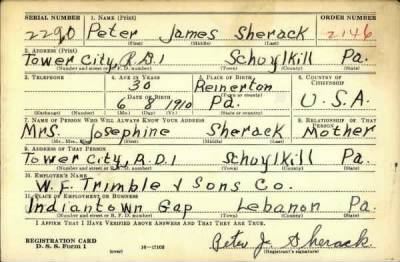 SERIAL NUMBER 1. NAME (Print) ORDER NUMBER
2290 Peter James Sherack 2146
(First) (Middle) (Last)
2. ADDRESS (Print)
Tower City, R.D.1 Schoylkill Pa.
(Number and street or R. F. D. number) (Town) (County) (State)
3. TELEPHONE 4. AGE IN YEARS 5. PLACE OF BIRTH 6. COUNTRY OF CITIZENSHIP
30 Reinerton
(Town or county)
6 1910 Pa. U.S.A.
7. NAME OF PERSON WHO WILL ALWAYS KNOW YOUR ADDRESS 8. RELATIONSHIP OF THAT PERSON
Mrs. Josephine Sherack Mother
(Mr., Mrs., Miss) (First) (Middle) (Last)
9. ADDRESS OF THAT PERSON
Tower City, R.D.1 Schoylkill Pa.
(Number and street or R. F. D. number) (Town) (County) (State)
10. EMPLOYER'S NAME
W. F. Trimble & Sons Co.
11. PLACE OF EMPLOYMENT OR BUSINESS
Indiantown Gap Lebanon Pa.
(Number and street or R. F. D. number) (Town) (County) (State)
I AFFIRM THAT I HAVE VERIFIED ABOVE ANSWERS AND THAT THEY ARE TRUE.
REGISTRATION CARD
D. S. S. Form 1 16—17105 Peter J. Sherack
(over) (Registrant's signature)